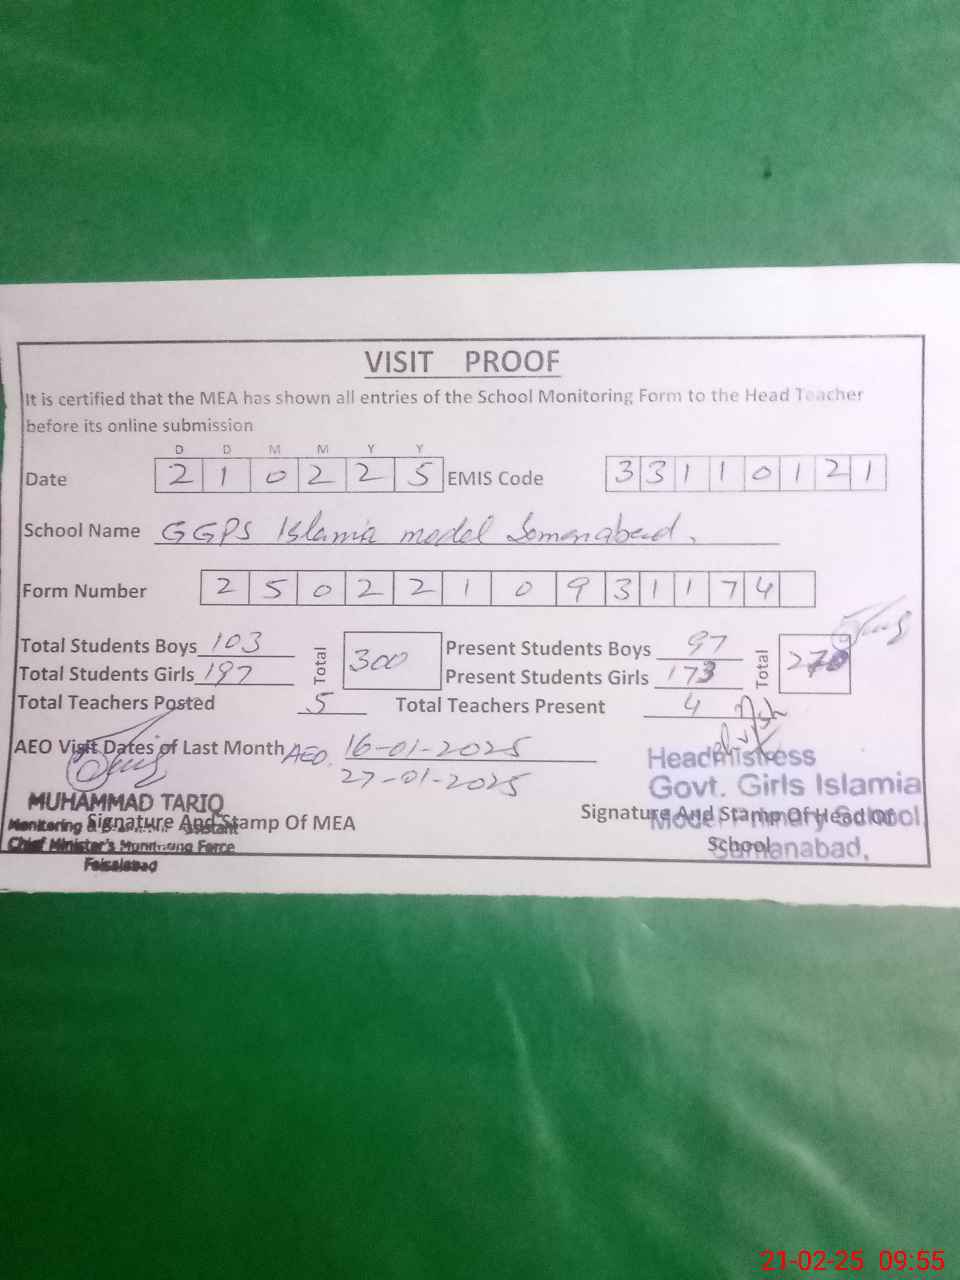 VISIT PROOF
It is certified that the MEA has shown all entries of the School Monitoring Form to the Head Teacher
before its online submission
D D M M Y Y
Date 2 1 0 2 2 5 EMIS Code 3 3 1 1 0 1 2 1
School Name GGPS Islamia model Samanabad.
Form Number 2 5 0 2 2 1 0 9 3 1 1 7 4
Total Students Boys 103 Total 300 Present Students Boys 97 Total 270
Total Students Girls 197 Present Students Girls 173
Total Teachers Posted 5 Total Teachers Present 4
AEO Visit Dates of Last Month AEO. 16-01-2025
27-01-2025
MUHAMMAD TARIQ
Monitoring & Assistant
Chief Minister's Monitoring Force
Faisalabad
Signature And Stamp Of MEA
Headmistress
Govt. Girls Islamia
Model Primary School
Samanabad,
Signature And Stamp Of Head Of
School
21-02-25 09:55